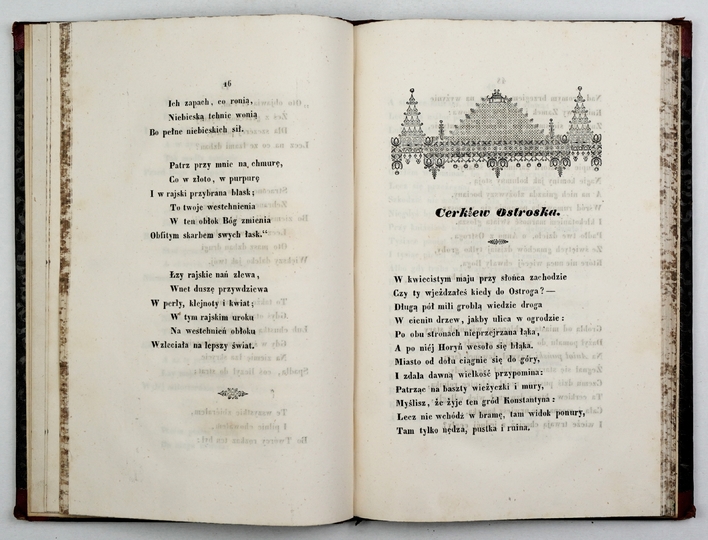 16
Ich zapach, co ronią,
Niebieską tchnie wonią
Bo pełne niebieskich sił.
Patrz przy mnie na chmurę,
Co w złoto, w purpurę
I w rajski przybrana blask;
To twoje westchnienia
W ten obłok Bóg zmienia
Obfitym skarbem swych łask."
Łzy rajskie nań zlewa,
Wnet duszę przywdziewa
W perły, klejnoty i kwiat;
W tym rajskim uroku
Na westchnień obłoku
Wzleciała na lepszy świat.
Cerkiew Ostroska.
W kwiecistym maju przy słońca zachodzie
Czy ty wjeżdżałeś kiedy do Ostroga?—
Długą pół mili groblą wiedzie droga
W cieniu drzew, jakby ulica w ogrodzie:
Po obu stronach nieprzejrzana łąka,
A po niéj Horyń wesoło się błąka.
Miasto od dołu ciągnie się do góry,
I zdala dawną wielkość przypomina:
Patrząc na baszty wieżyczki i mury,
Myślisz, że żyje ten gród Konstantyna:
Lecz nie wchódź w bramę, tam widok ponury,
Tam tylko nędza, pustka i ruina.